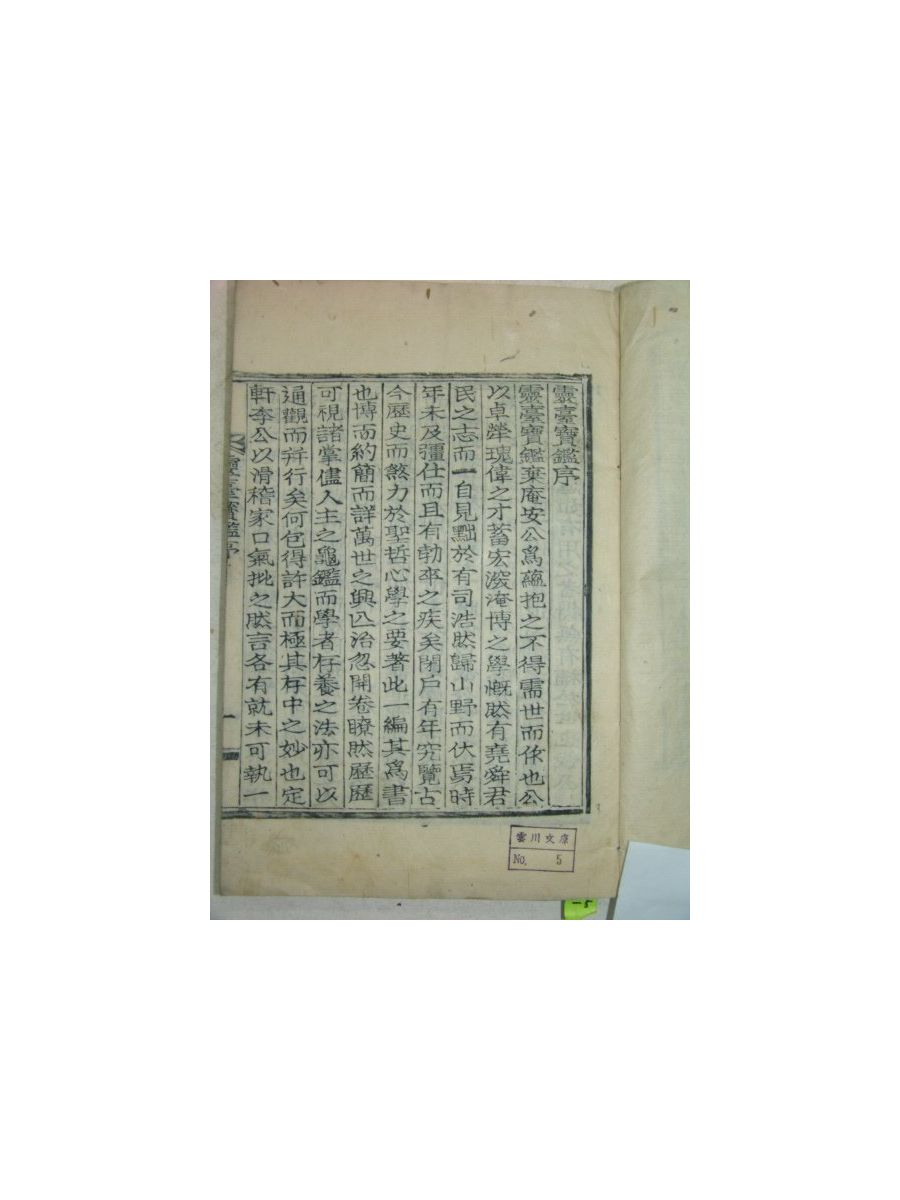 靈臺寶鑑序
靈臺寶鑑棄庵安公爲蘊抱之不得需世而作也公
以卓犖瑰偉之才蓄宏浚淹博之學慨然有堯舜君
民之志而一自見黜於有司浩然歸山野而伏焉時
年未及彊仕而且有勃窣之疾矣閉戶有年究覽古
今歷史而煞力於聖哲心學之要著此一編其爲書
也博而約簡而詳萬世之興亾治忽開卷瞭然歷歷
可視諸掌儘人主之龜鑑而學者存養之法亦可以
通觀而幷行矣何包得許大而極其存中之妙也定
軒李公以滑稽家口氣批之然言各有就未可執一
靈臺寶鑑序
一
雲川文庫
No. 5